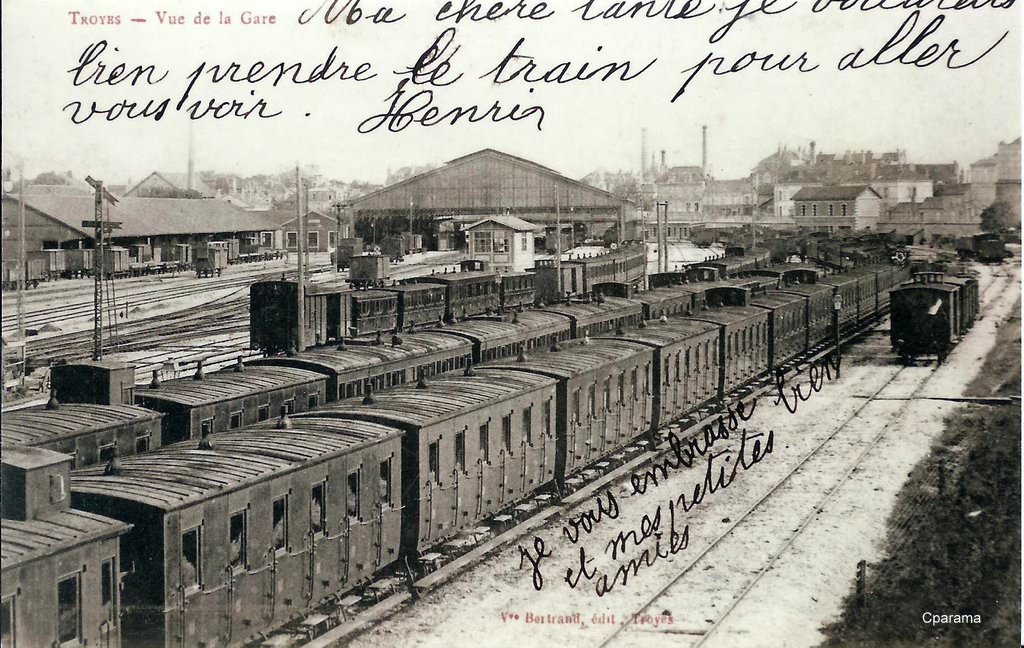 TROYES — Vue de la Gare
Ma chère tante je voudrais
bien prendre le train pour aller
vous voir. Henri
je vous embrasse bien
et mes petites
amies
Vve Bertrand, édit. Troyes
Cparama